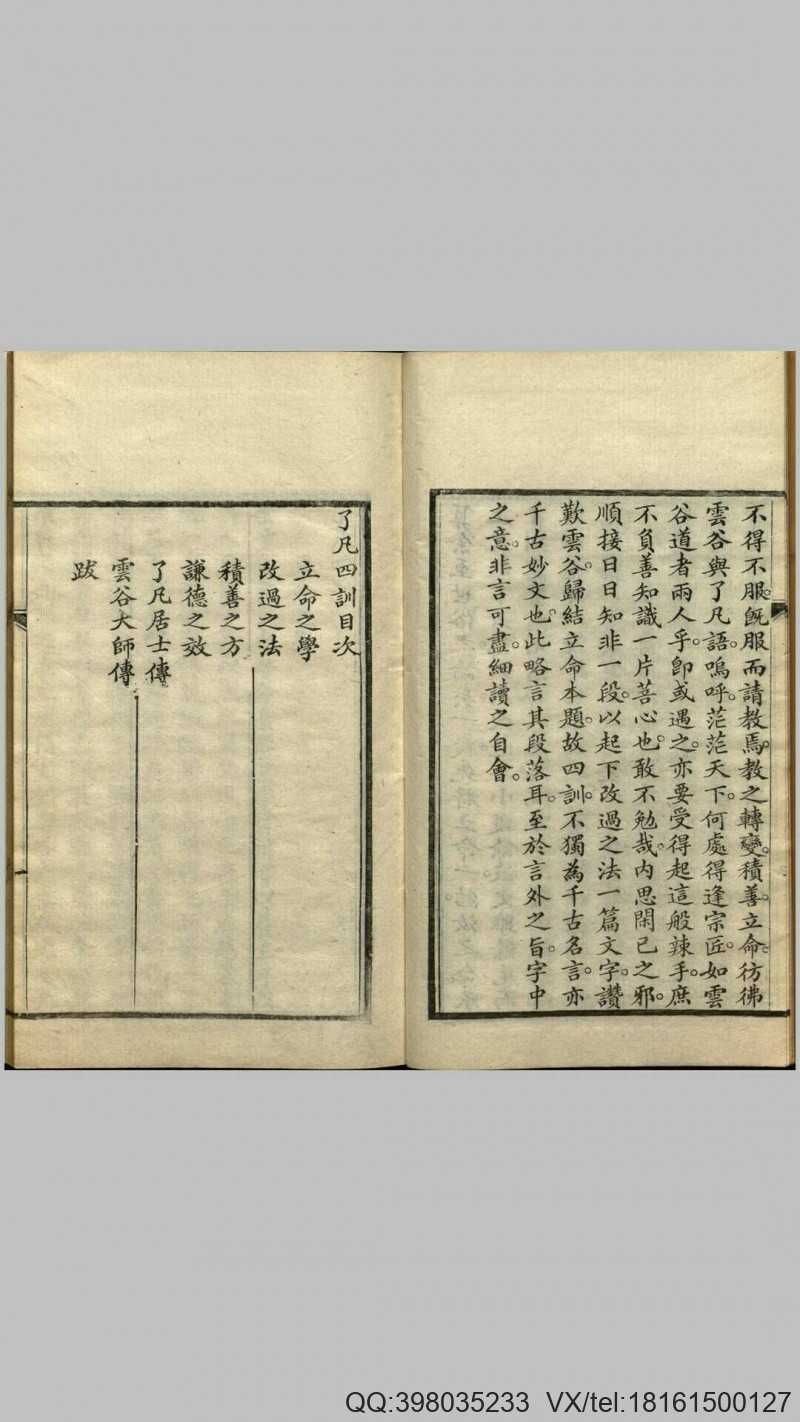 不得不服。旣服而請教焉。教之轉變。積善。立命。彷彿
雲谷與了凡語。嗚呼。茫茫天下。何處得逢宗匠。如雲
谷道者兩人乎。卽或遇之。亦要受得起這般辣手。庶
不負善知識一片菩心也。敢不勉哉。內思閑己之邪。
順接日日知非一段。以起下改過之法一篇文字。讚
歎雲谷。歸結立命本題。故四訓。不獨為千古名言。亦
千古妙文也。此略言其段落耳。至於言外之旨。字中
之意。非言可盡。細讀之自會。
了凡四訓目次
立命之學
改過之法
積善之方
謙德之效
了凡居士傳
雲谷大師傳
跋
QQ:398035233 VX/tel:18161500127